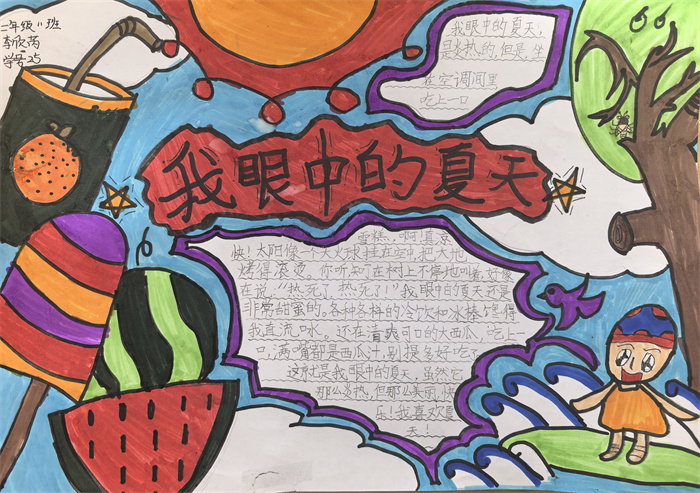 二年级11班
李欣芮
学号25
我眼中的夏天,
是炎热的,但是,坐
在空调间里
吃上一口
我眼中的夏天
雪糕,啊!真凉
快!太阳像一个大火球挂在空中,把大地
烤得滚烫。你听,知了在树上不停地叫着,好像
在说,“热死了,热死了!”我眼中的夏天还是
非常甜蜜的。各种各样的冷饮和冰棒馋得
我直流口水。还在清爽可口的大西瓜,吃上一
口,满嘴都是西瓜汁,别提多好吃了
这就是我眼中的夏天,虽然它
那么炎热,但那么美丽,快
乐!我喜欢夏
天!